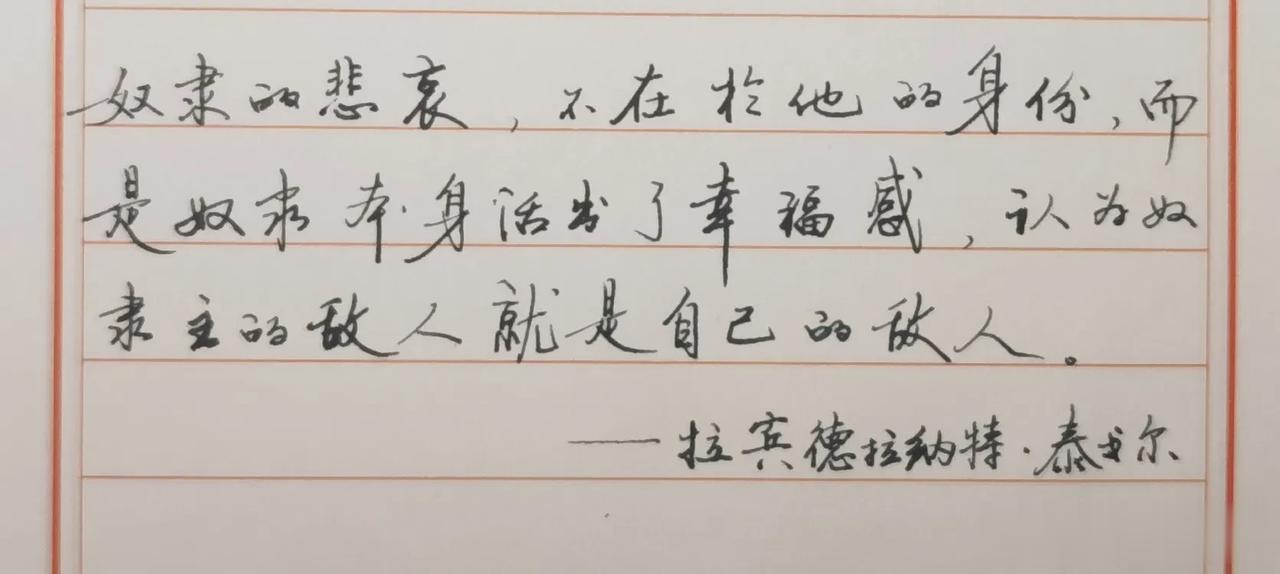 奴隶的悲哀，不在於他的身份，而
是奴隶本身活出了幸福感，认为奴
隶主的敌人就是自己的敌人。
——拉宾德拉纳特·泰戈尔